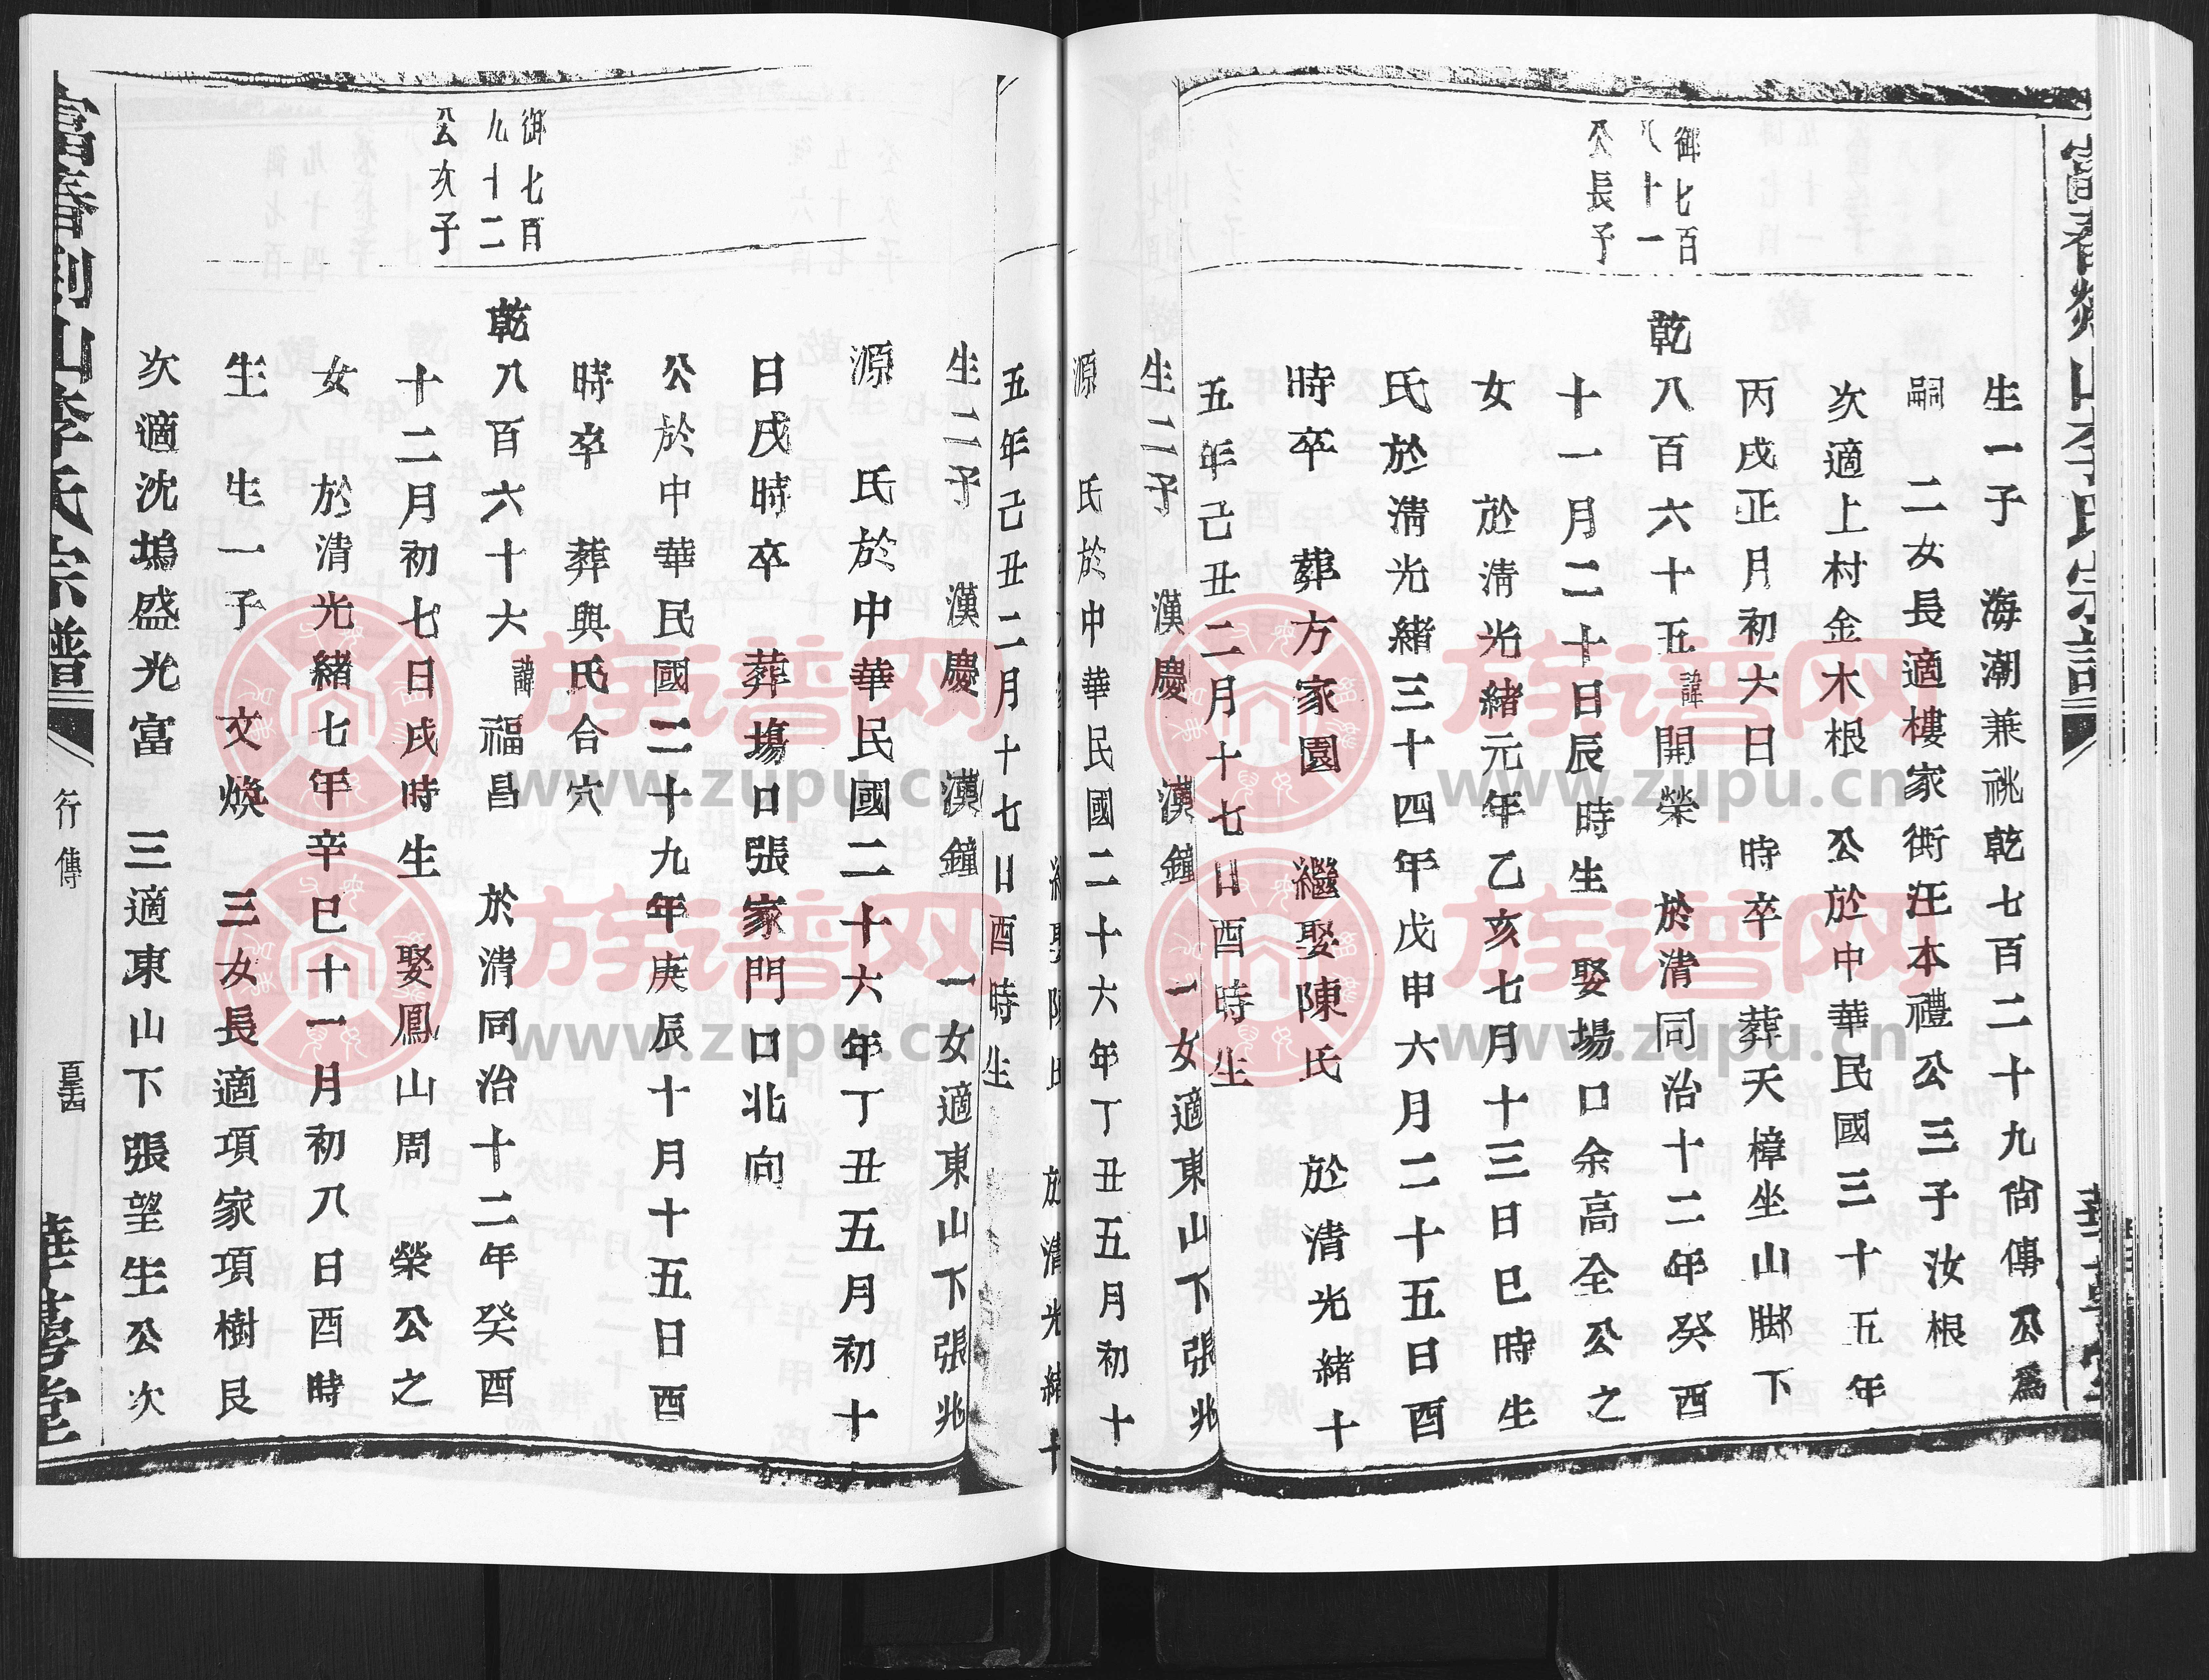 生一子　海潮兼祧乾七百二十九尙傳公爲
嗣　二女長適樓家衖汪本禮公三子汝根
次適上村金木根　公於中華民國三十五年
丙戌正月初六日　時卒　葬天樟坐山脚下
御七百
八十一
公長子
乾八百六十五諱開榮　於淸同治十二年癸酉
十一月二十日辰時生　娶場口余高全公之
女　於淸光緒元年乙亥七月十三日巳時生
氏於淸光緒三十四年戊申六月二十五日酉
時卒　葬方家園　繼娶陳氏　於淸光緒十
五年己丑二月十七日酉時生
生二子　漢慶　漢鐘　一女適東山下張兆
源　氏於中華民國二十六年丁丑五月初十
五年己丑二月十七日酉時生
生二子　漢慶　漢鐘　一女適東山下張兆
源　氏於中華民國二十六年丁丑五月初十
日戌時卒　葬塲口張家門口北向
公於中華民國二十九年庚辰十月十五日酉
時卒　葬與氏合穴
御七百
九十二
公次子
乾八百六十六諱福昌　於淸同治十二年癸酉
十二月初七日戌時生　娶鳳山周　榮公之
女　於清光緒七年辛巳十一月初八日酉時
生　生一子　文煥　三女長適項家項樹艮
次適沈塢盛光富　三適東山下張望生公次
山李氏宗譜
行傳
堂
族谱网
www.zupu.cn
族谱网
www.zupu.cn
族谱网
www.zupu.cn
族谱网
www.zupu.cn